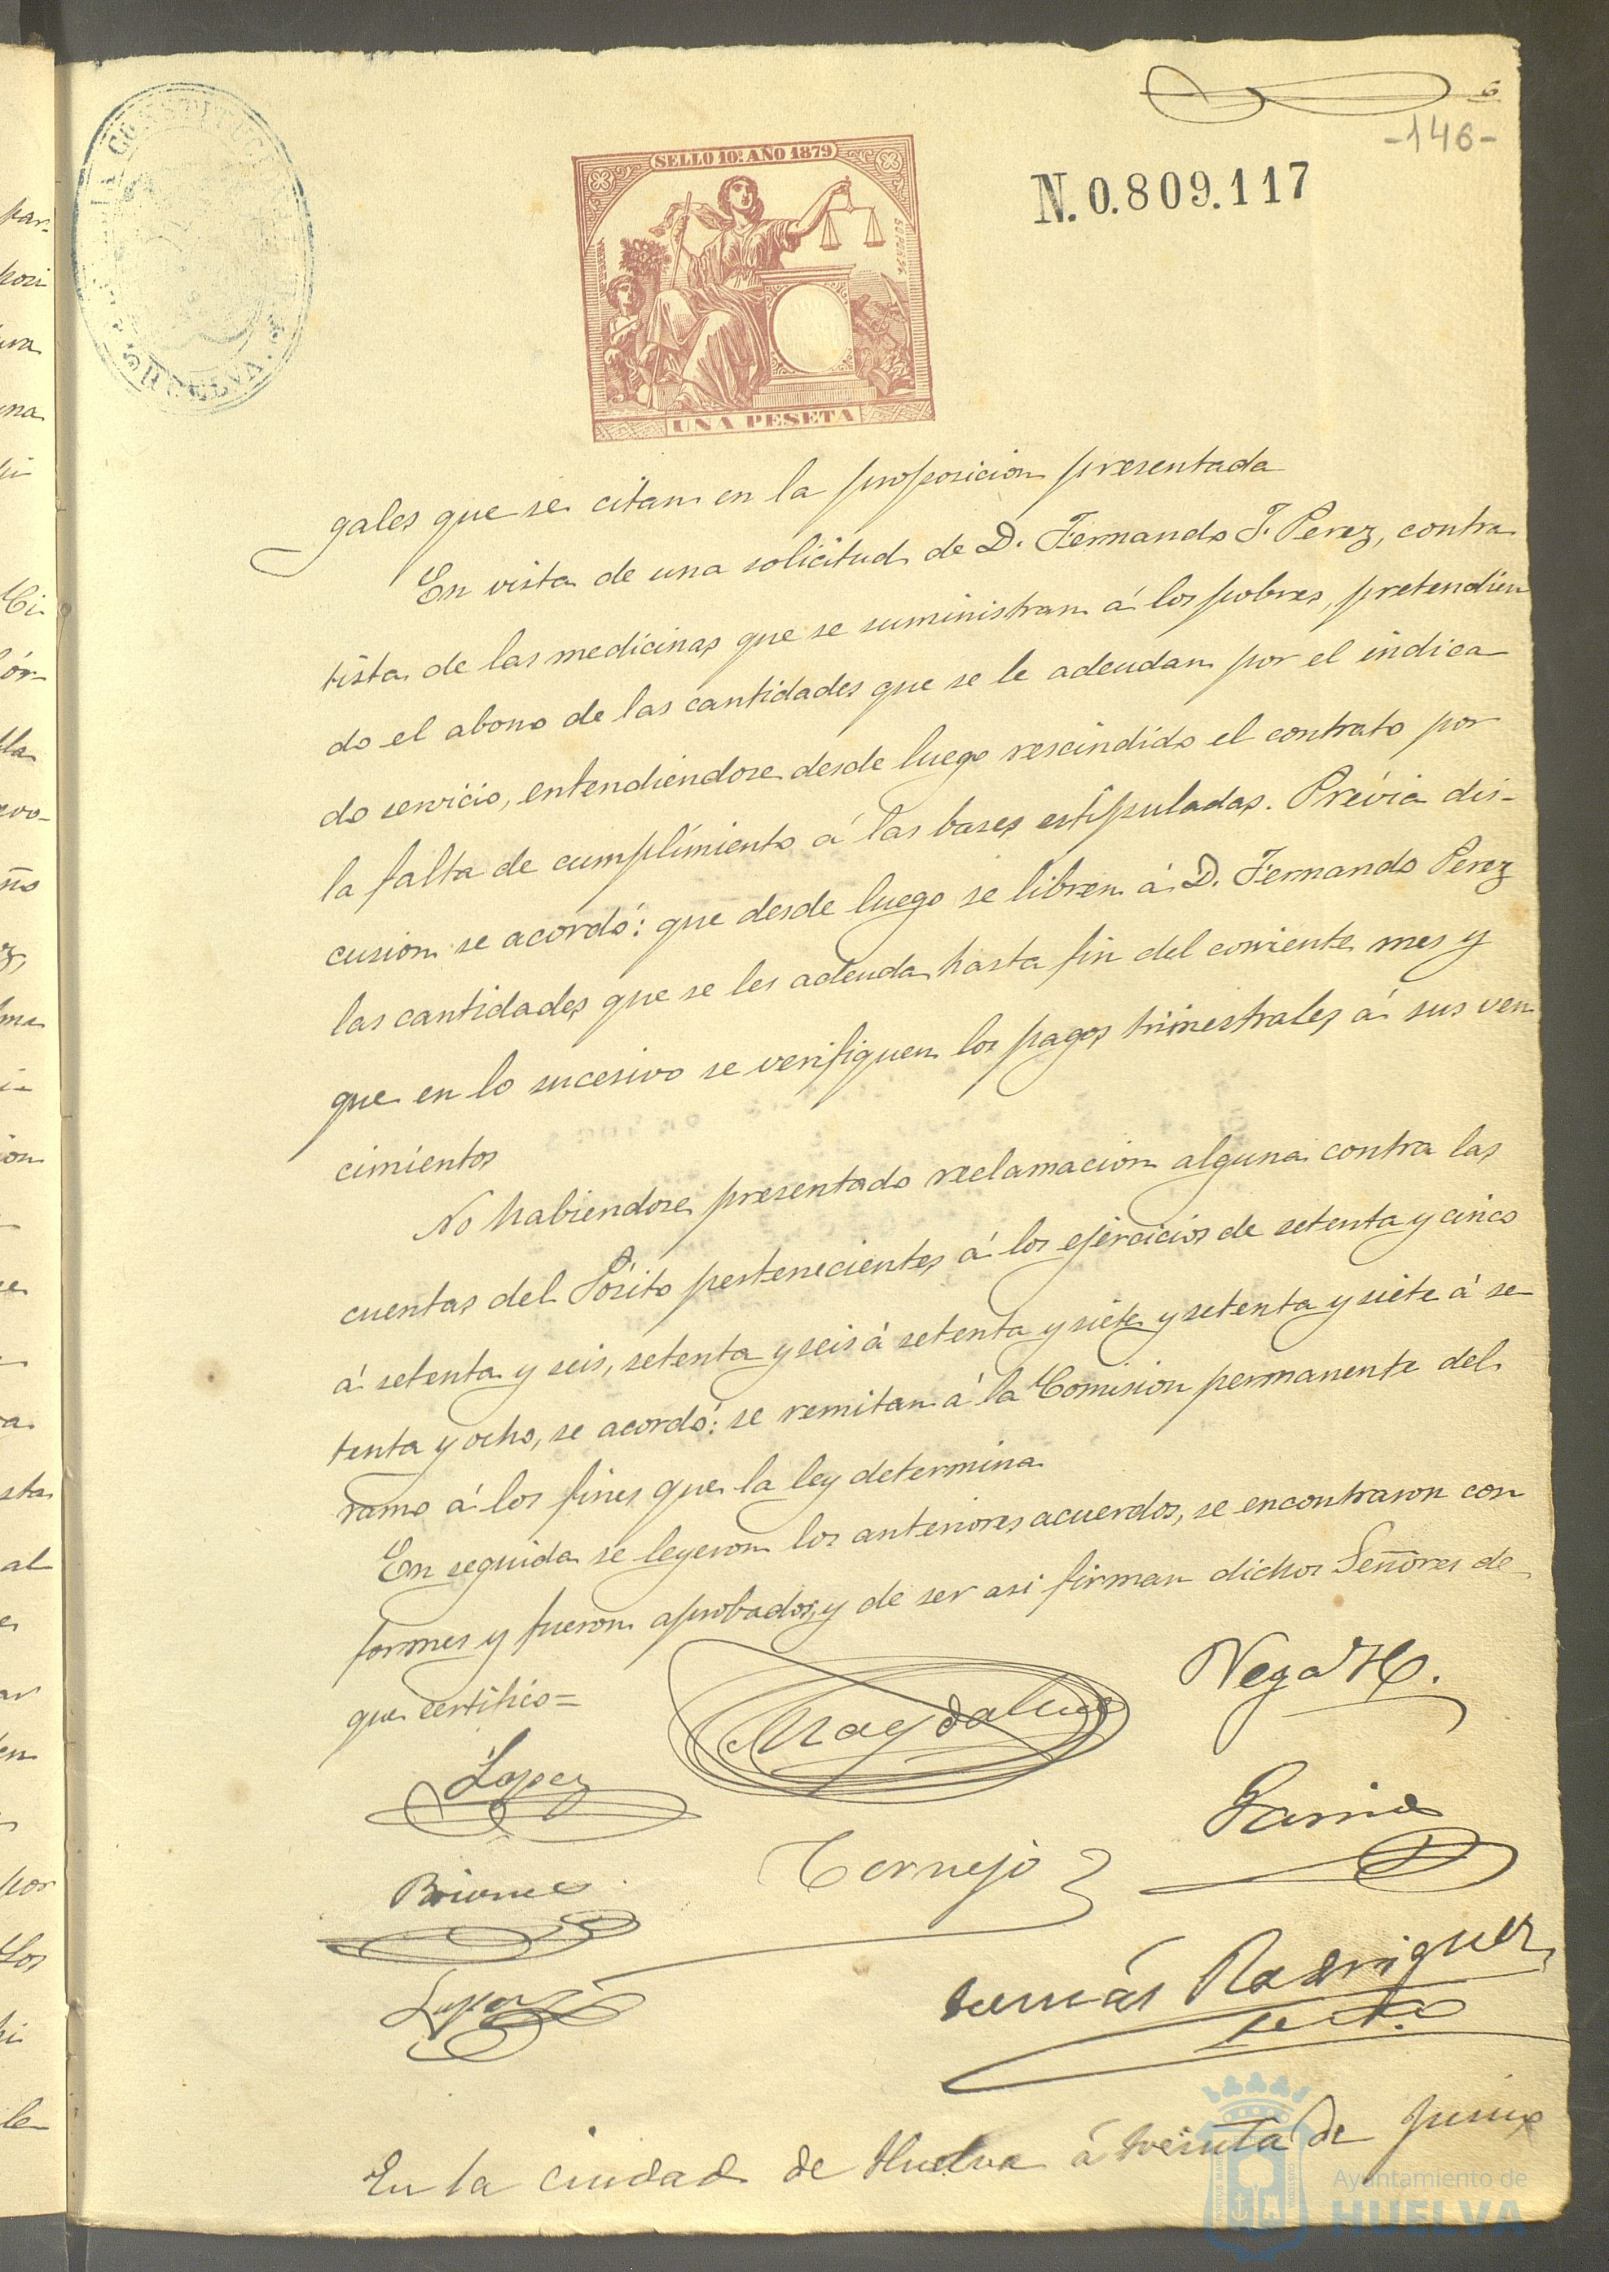 6
-146-
CONSTITUCI
HUELVA
SELLO 10º AÑO 1879
N.0.809.117
UNA PESETA
gales que se citan en la proposicion presentada
En vista de una solicitud de D. Fernando F. Perez, contra
tista de las medicinas que se suministran á los pobres, pretendien
do el abono de las cantidades que se le adeudan por el indica
do servicio, entendiendose desde luego rescindido el contrato por
la falta de cumplimiento á las bases estipuladas. Prévia dis-
cusion se acordó: que desde luego se libren á D. Fernando Perez
las cantidades que se les adeuda hasta fin del corriente mes y
que en lo sucesivo se verifiquen los pagos trimestrales á sus ven
cimientos
No habiendose presentado reclamacion alguna contra las
cuentas del Pósito pertenecientes á los ejercicios de setenta y cinco
á setenta y seis, setenta y seis á setenta y siete y setenta y siete á se
tenta y ocho, se acordó: se remitan á la Comision permanente del
ramo á los fines que la ley determina
En seguida se leyeron los anteriores acuerdos, se encontraron con
formes y fueron aprobados, y de ser asi firman dichos Señores de
que certifico=
Vega H.
Lopez
Garrido
Cornejo
Briones
Lopez
Tomás Rodriguez
En la ciudad de Huelva á treinta de Junio
Ayuntamiento de
HUELVA